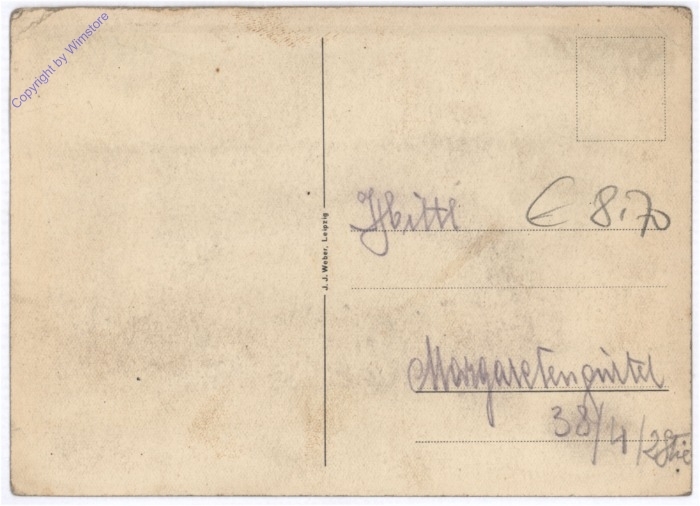 Copyright by Wimstore
J. J. Weber, Leipzig
€ 8.70
Margaretengürtel
38/4/2 Stie